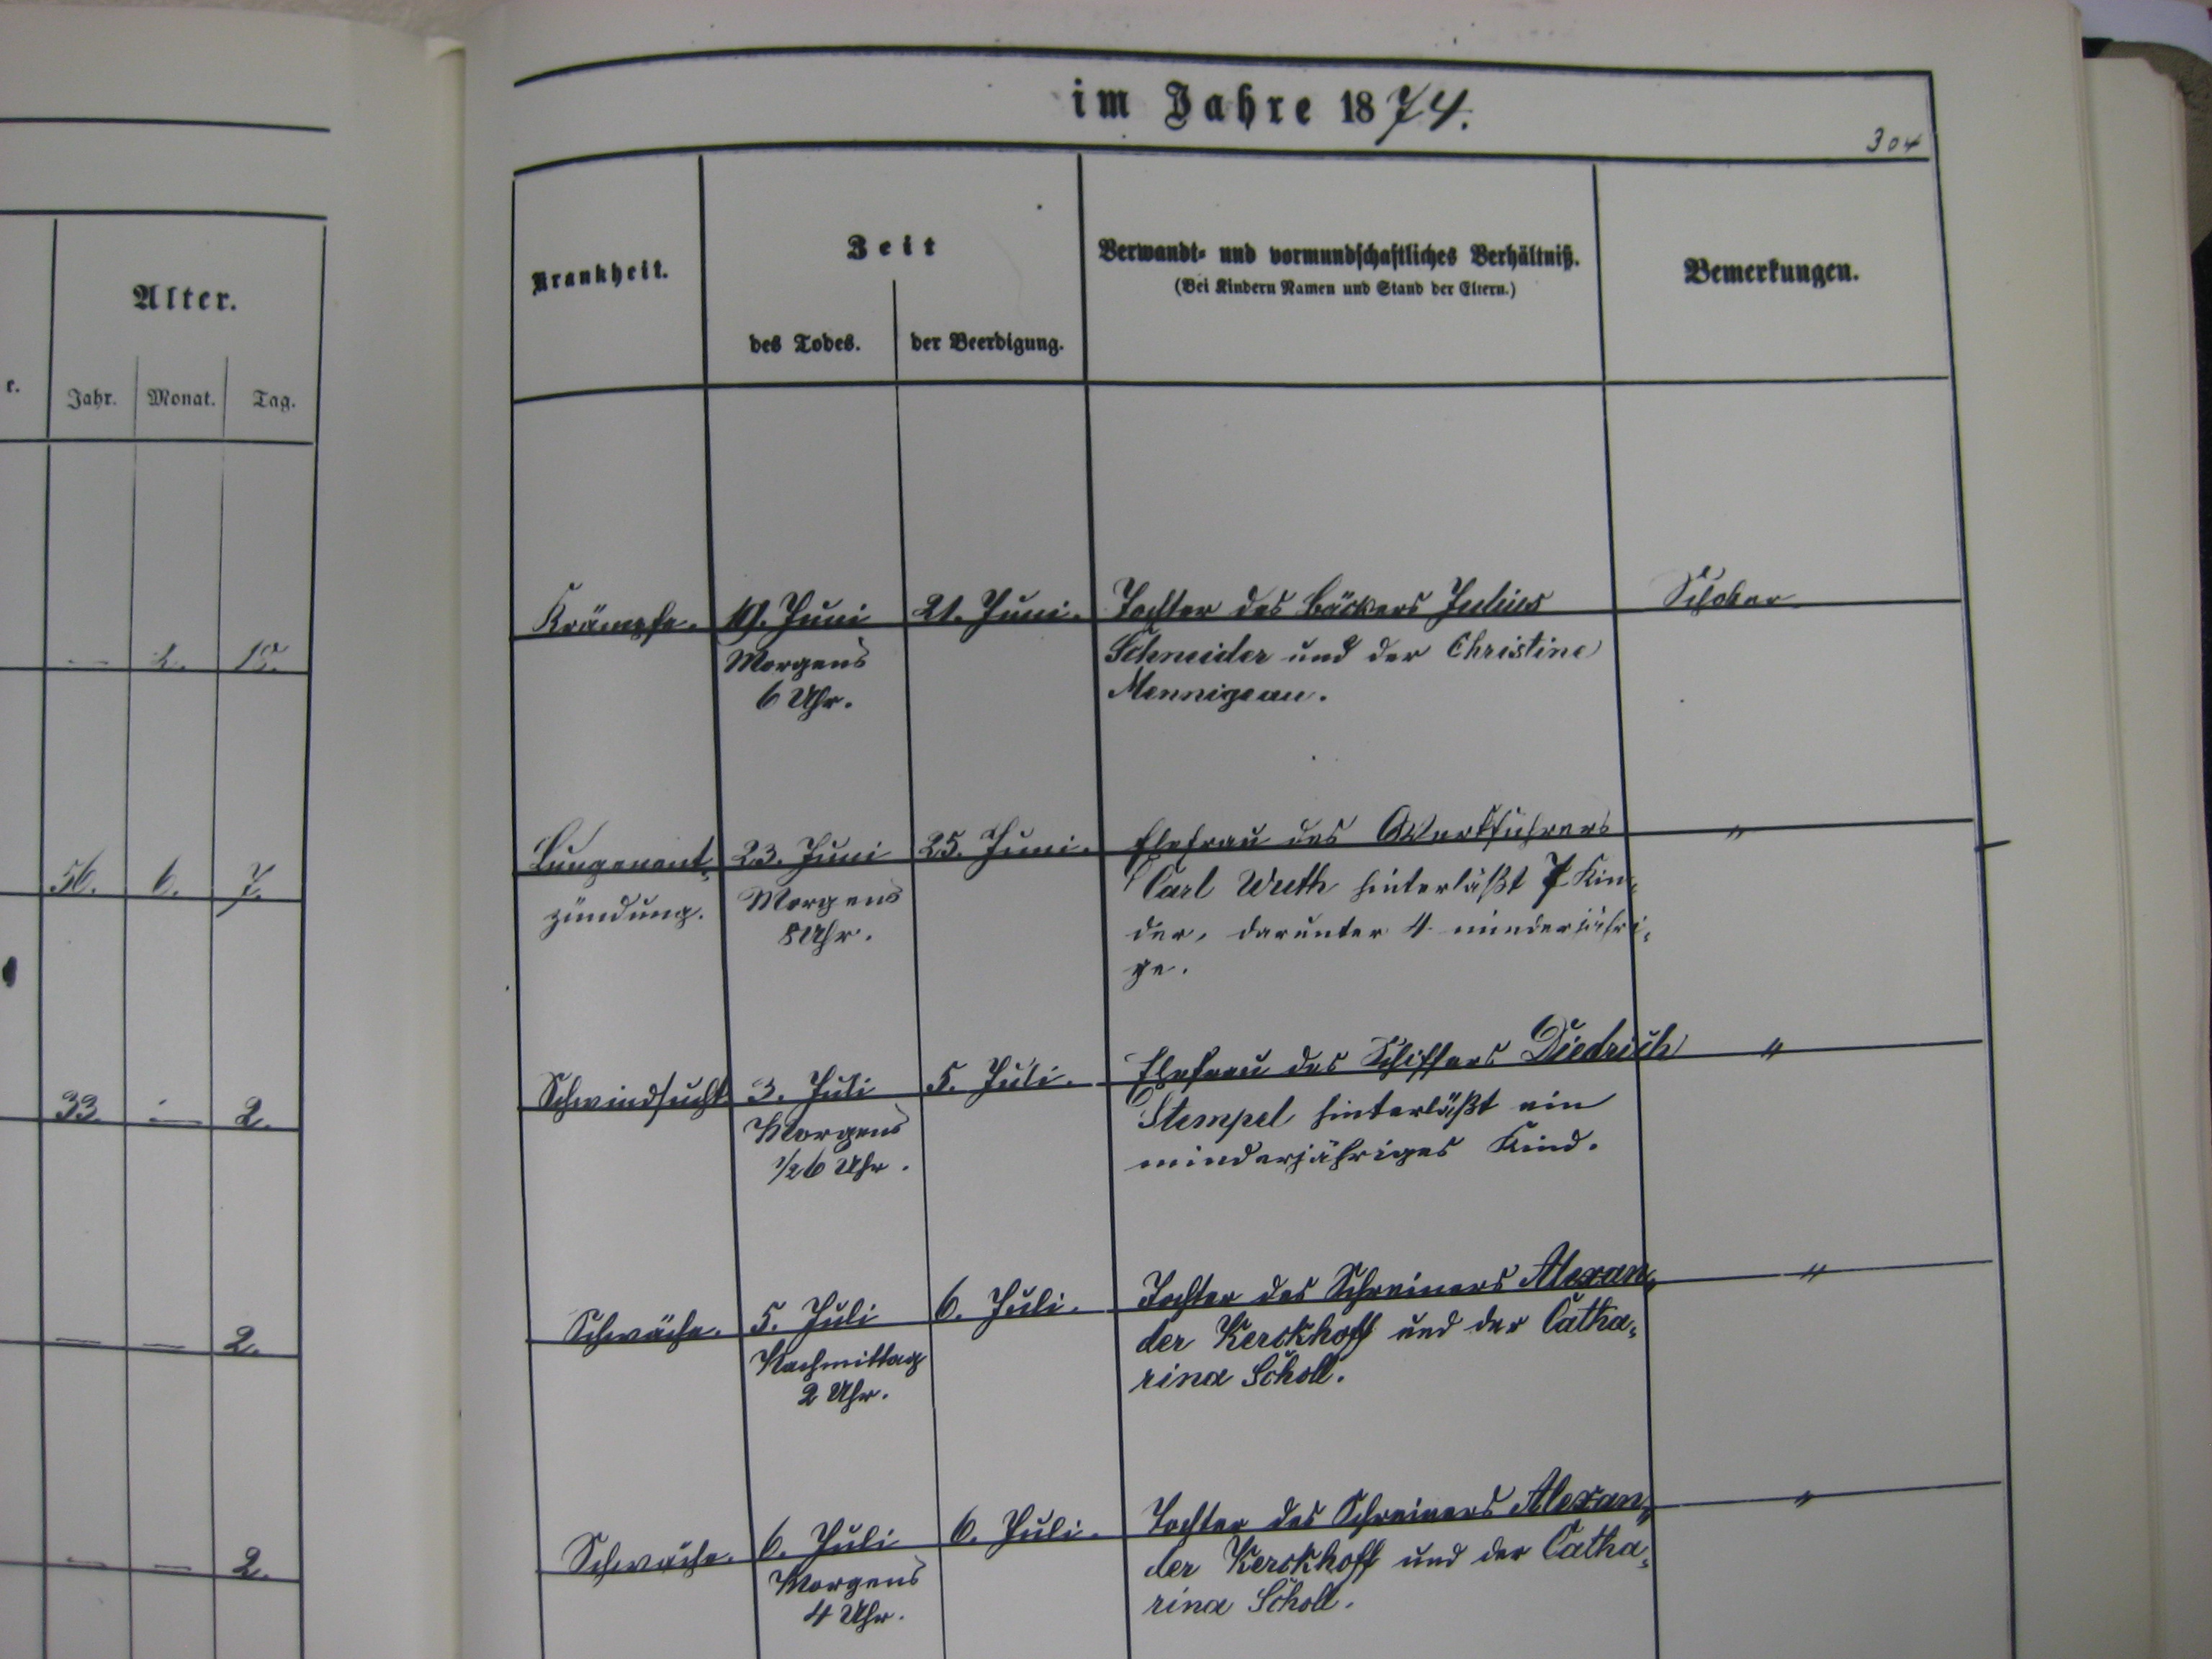 r.
Alter.
Jahr. Monat. Tag.
— 2.
56. 6. 7.
33. — 2.
— — 2.
— — 2.
im Jahre 1874.
304
Krankheit.
Zeit
des Todes.
der Beerdigung.
Verwandt- und vormundschaftliches Verhältniß.
(Bei Kindern Namen und Stand der Eltern.)
Bemerkungen.
Krämpfe.
19. Juni
Morgens
6 Uhr.
21. Juni.
Tochter des Bäckers Julius
Schneider und der Christine
Mennigeau.
Schober
Lungenent-
zündung.
23. Juni
Morgens
8 Uhr.
25. Juni.
Ehefrau des Werkführers
Carl Wuth hinterläßt 7 Kin-
der, darunter 4 minderjähri-
ge.
"
Schwindsucht
3. Juli
Morgens
1/2 6 Uhr.
5. Juli.
Ehefrau des Schiffers Diedrich
Stempel hinterläßt ein
minderjähriges Kind.
"
Schwäche.
5. Juli
Nachmittag
2 Uhr.
6. Juli.
Tochter des Schreiners Alexan-
der Kerckhoff und der Catha-
rina Scholl.
"
Schwäche.
6. Juli
Morgens
4 Uhr.
6. Juli.
Tochter des Schreiners Alexan-
der Kerckhoff und der Catha-
rina Scholl.
"